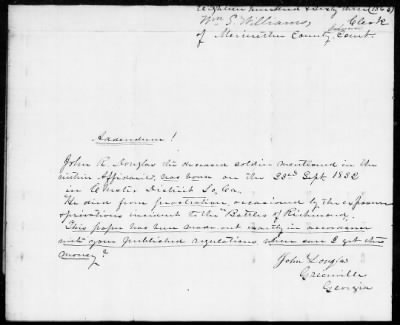 Eighteen hundred & Sixty three (1863)
Wm S. Williams, Clerk
of Meriwether County Court.
Addendum!
John R. Douglas the deceased soldier mentioned in the
within Affidavit, was born on the 23rd Sept 1832
in Chester District So. Ca.
He died from prostration occasioned by the exposure
& privations incident to the "Battles of Richmond.
This paper has been made out exactly in accordance
with your published regulations when can I get the
money?
John Douglas
Greenville
Georgia